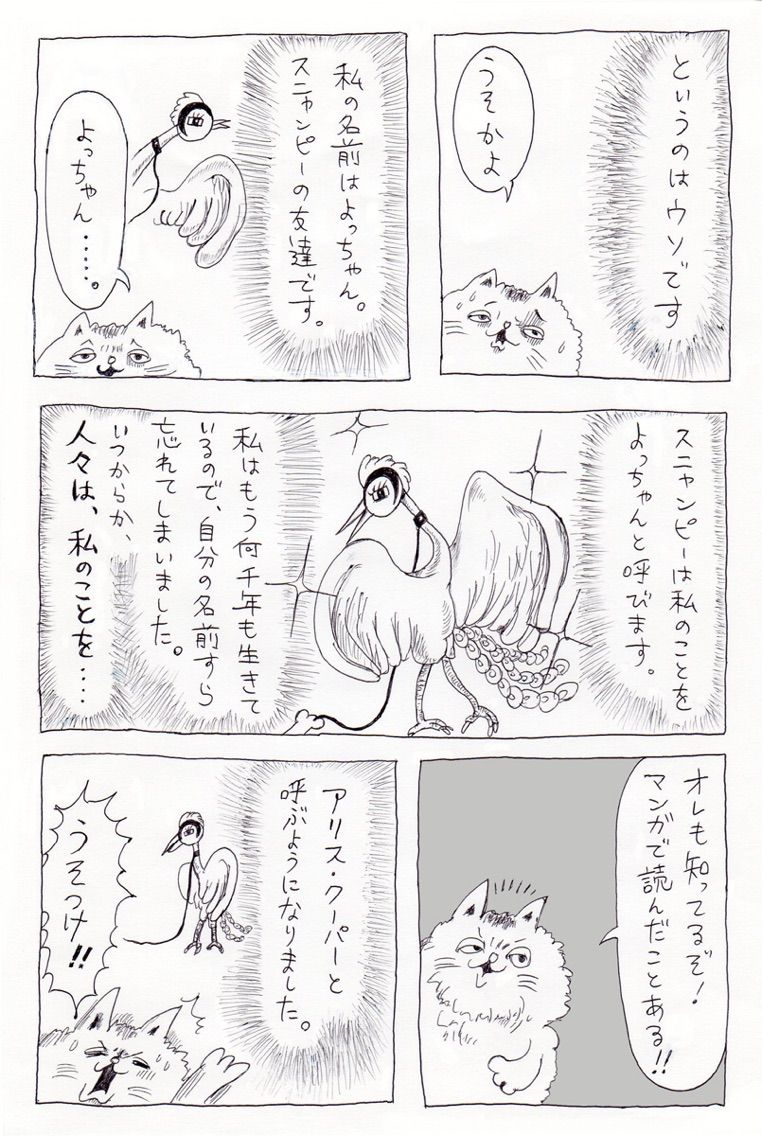 というのはウソです
うそかよ
私の名前はよっちゃん。
スニャンピーの友達です。
よっちゃん‥‥‥。
スニャンピーは私のことを
よっちゃんと呼びます。
私はもう何千年も生きて
いるので、自分の名前すら
忘れてしまいました。
いつからか、
人々は、私のことを‥‥
オレも知ってるぞ!
マンガで読んだことある!!
アリス・クーパーと
呼ぶようになりました。
うそつけ!!